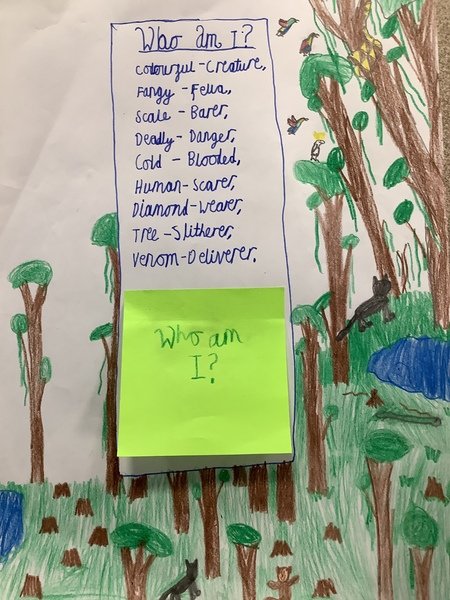 Who am I?
Colourful-Creature,
Fangy-Fella,
Scale-Barer,
Deadly-Danger,
Cold-Blooded,
Human-Scarer,
Diamond-Wearer,
Tree-Slitherer,
Venom-Deliverer.
Who am
I?